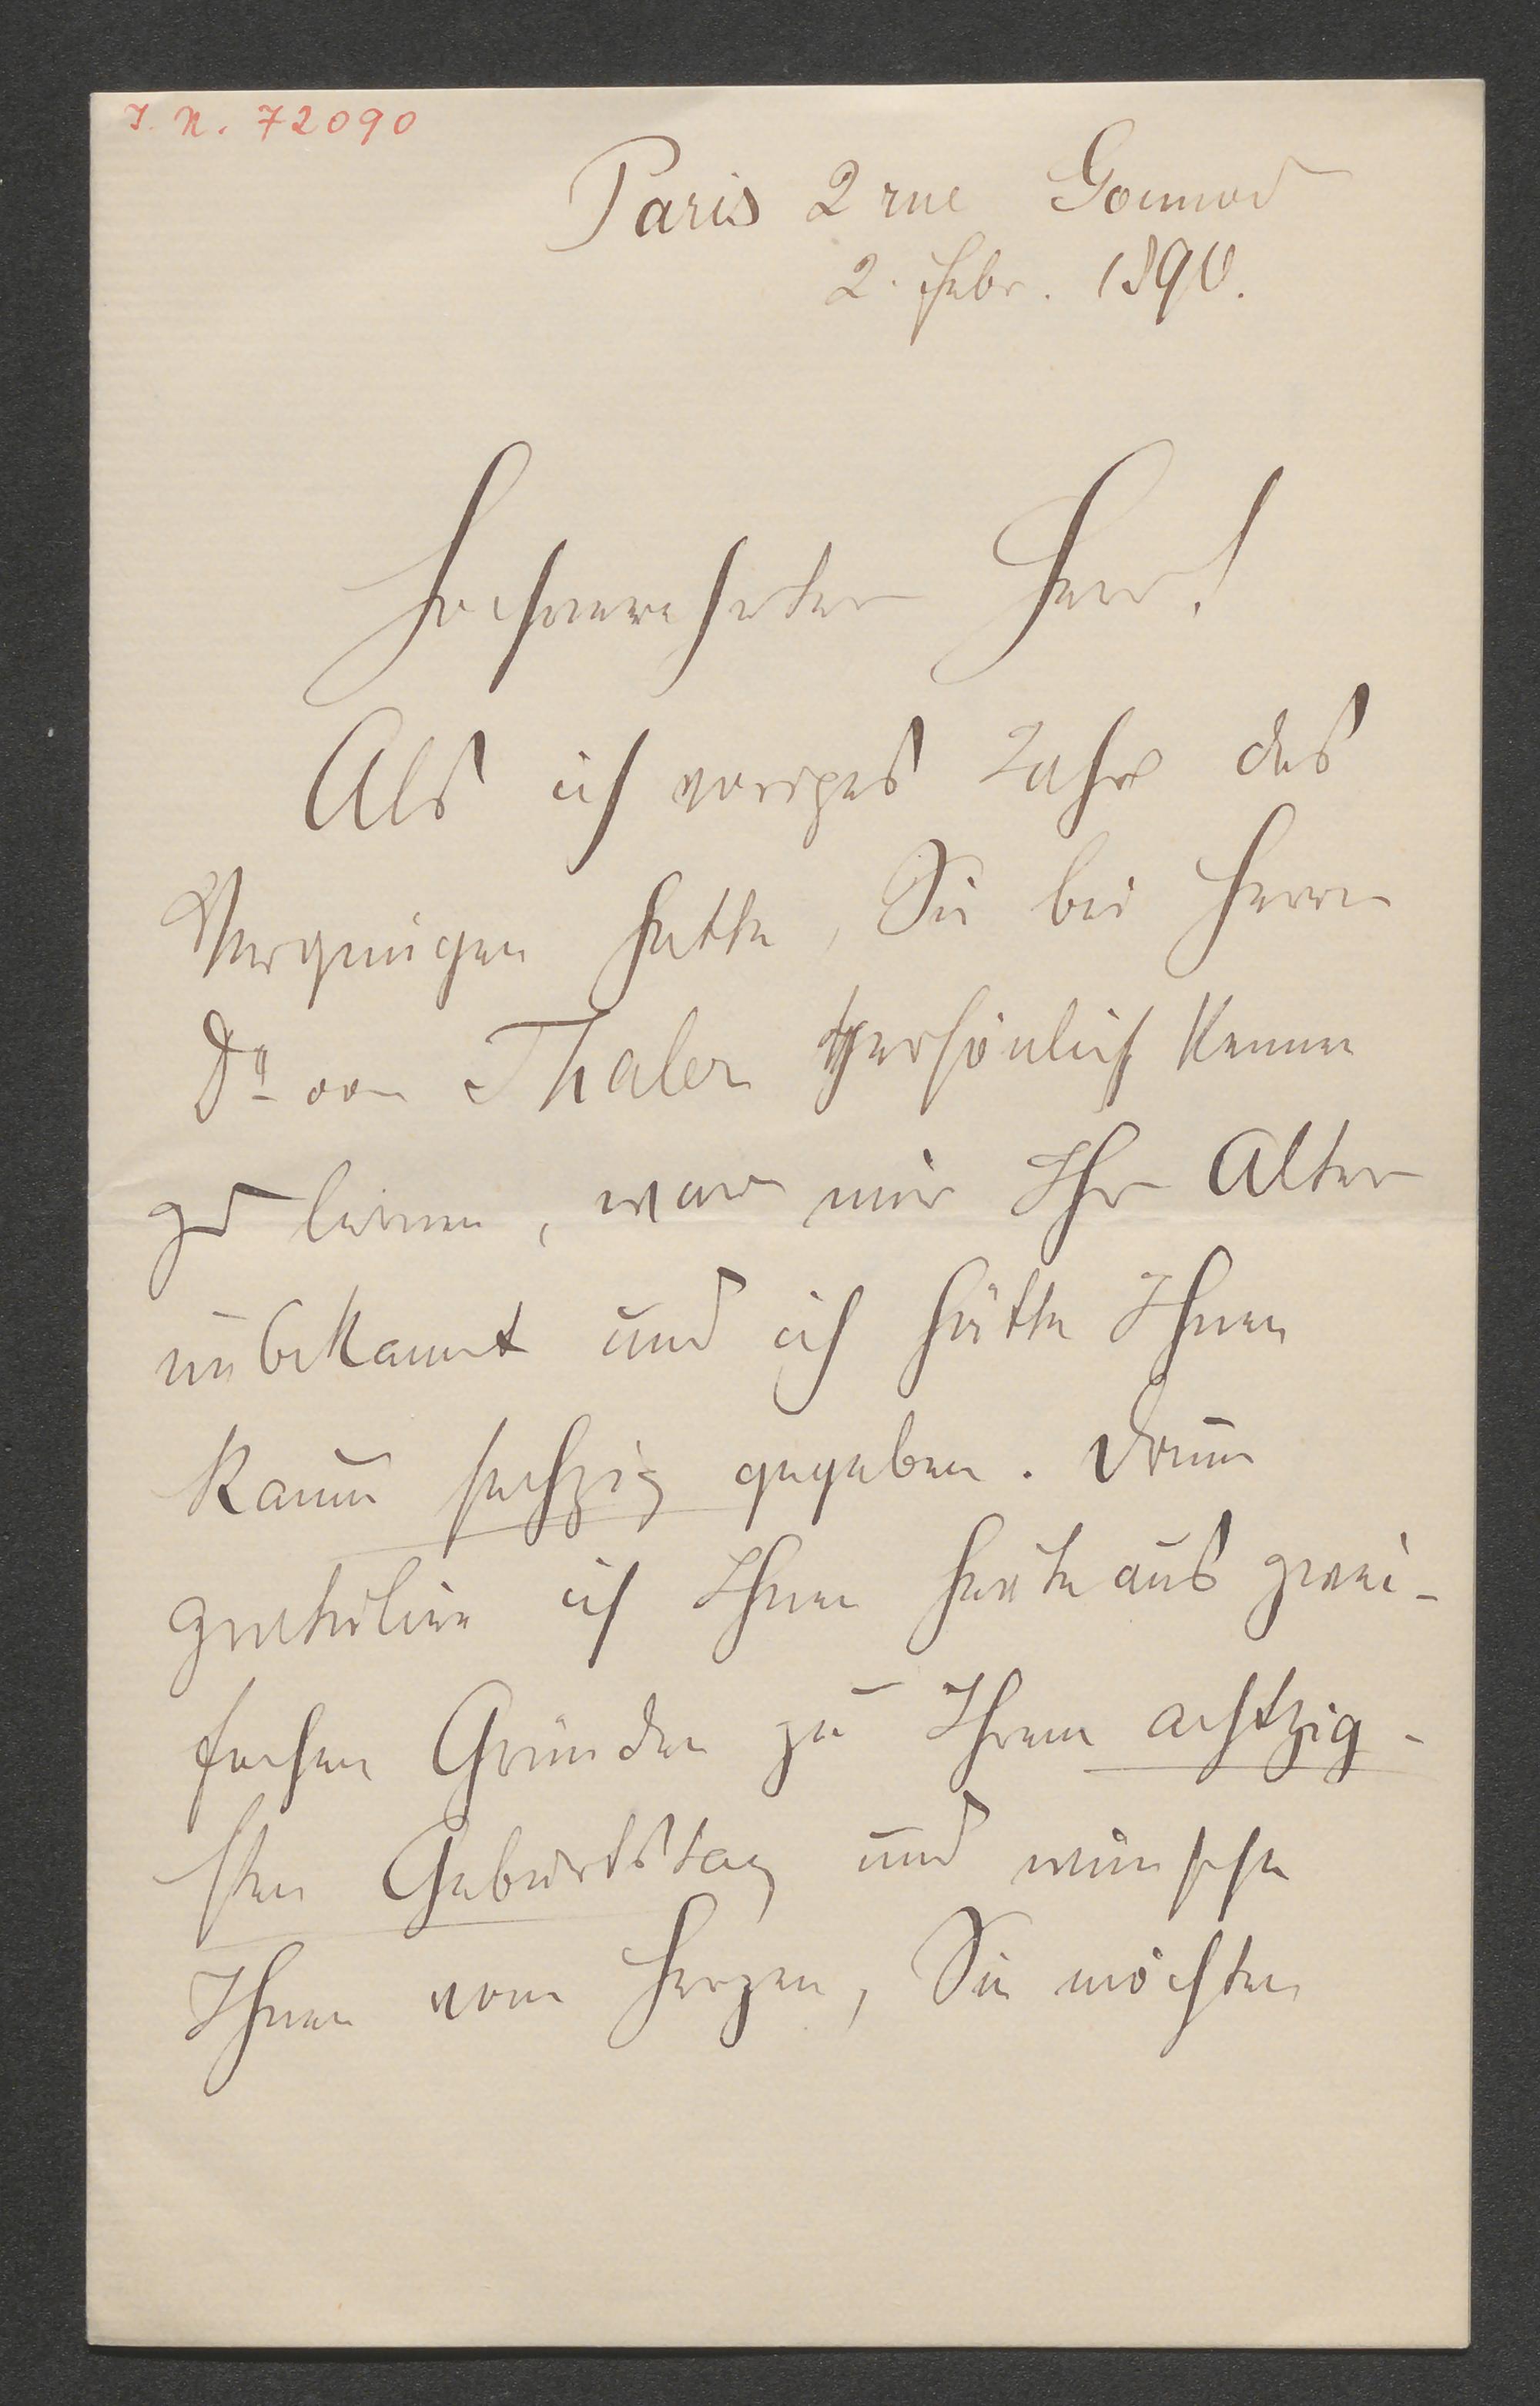 I. N. 72090
Paris 2 rue Gounod
2. Febr. 1890.
Hochverehrter Herr!
Als ich voriges Jahr das
Vergnügen hatte, Sie bei Herrn
Dr. von Thaler persönlich kennen
zu lernen, war mir Ihr Alter
unbekannt und ich hätte Ihnen
kaum sechzig gegeben. Drum
gratulire ich Ihnen heute aus zwei-
fachen Gründen zu Ihrem achtzig-
sten Geburtstag und wünsche
Ihnen vom Herzen, Sie möchten